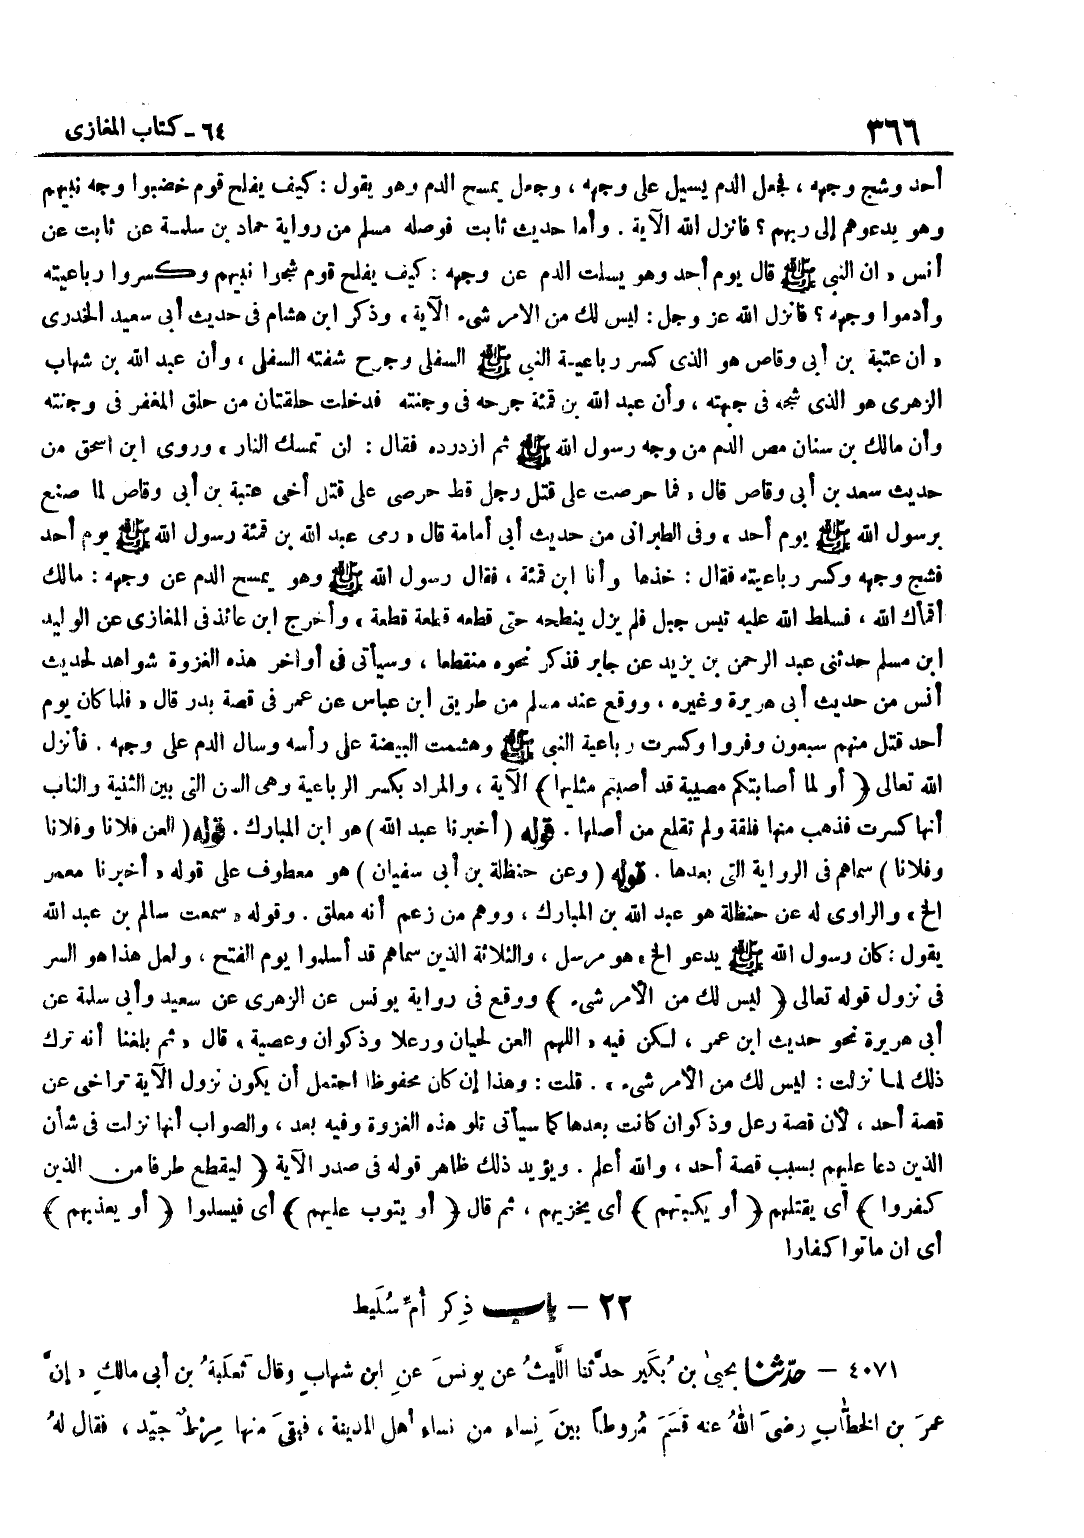 ٣٦٦
٦٤ - كتاب المغازى
أحد وشج وجهه ، فجعل الدم يسيل على وجهه ، وجعل يمسح الدم وهو يقول : كيف يفلح قوم خضبوا وجه نبيهم
وهو يدعوهم إلى ربهم ؟ فانزل الله الآية . وأما حديث ثابت فوصله مسلم من رواية حماد بن سلمة عن ثابت عن
أنس « ان النبى ﷺ قال يوم أحد وهو يسلت الدم عن وجهه : كيف يفلح قوم شجوا نبيهم وكسروا رباعيته
وأدموا وجهه ؟ فانزل الله عز وجل : ليس لك من الامر شىء الآية » وذكر ابن هشام فى حديث أبى سعيد الخدرى
« ان عتبة بن أبى وقاص هو الذى كسر رباعية النبى ﷺ السفلى وجرح شفته السفلى ، وأن عبد الله بن شهاب
الزهرى هو الذى شجه فى جبهته ، وأن عبد الله بن قمئة جرحه فى وجنته فدخلت حلقتان من حلق المغفر فى وجنته
وأن مالك بن سنان مص الدم من وجه رسول الله ﷺ ثم ازدرده فقال : لن تمسك النار » وروى ابن اسحق من
حديث سعد بن أبى وقاص قال « فما حرصت على قتل رجل قط حرصى على قتل أخى عتبة بن أبى وقاص لما صنع
برسول الله ﷺ يوم أحد » وفى الطبرانى من حديث أبى أمامة قال « رمى عبد الله بن قمئة رسول الله ﷺ يوم أحد
فشج وجهه وكسر رباعيته فقال : خذها وأنا ابن قمئة ، فقال رسول الله ﷺ وهو يمسح الدم عن وجهه : مالك
أقمأك الله ، فسلط الله عليه تيس جبل فلم يزل ينطحه حتى قطعه قطعة قطعة » وأخرج ابن عائذ فى المغازى عن الوليد
ابن مسلم حدثنى عبد الرحمن بن يزيد عن جابر فذكر نحوه منقطعا ، وسيأتى فى أواخر هذه الغزوة شواهد لحديث
أنس من حديث أبى هريرة وغيره ، ووقع عند مسلم من طريق ابن عباس عن عمر فى قصة بدر قال « فلما كان يوم
أحد قتل منهم سبعون وفروا وكسرت رباعية النبى ﷺ وهشمت البيضة على رأسه وسال الدم على وجهه . فأنزل
الله تعالى ﴿ أو لما أصابتكم مصيبة قد أصبتم مثليها ﴾ الآية ، والمراد بكسر الرباعية وهى السن التى بين الثنية والناب
أنها كسرت فذهب منها فلقة ولم تقلع من أصلها . قوله ( أخبرنا عبد الله ) هو ابن المبارك . قوله ( العن فلانا وفلانا
وفلانا ) سماهم فى الرواية التى بعدها . قوله ( وعن حنظلة بن أبى سفيان ) هو معطوف على قوله « أخبرنا معمر
الخ » والراوى له عن حنظلة هو عبد الله بن المبارك ، ووهم من زعم أنه معلق . وقوله « سمعت سالم بن عبد الله
يقول : كان رسول الله ﷺ يدعو الخ » هو مرسل ، والثلاثة الذين سماهم قد أسلموا يوم الفتح ، ولعل هذا هو السر
فى نزول قوله تعالى ﴿ ليس لك من الأمر شىء ﴾ ووقع فى رواية يونس عن الزهرى عن سعيد وأبى سلمة عن
أبى هريرة نحو حديث ابن عمر ، لكن فيه « اللهم العن لحيان ورعلا وذكوان وعصية » قال « ثم بلغنا أنه ترك
ذلك لما نزلت : ليس لك من الأمر شىء » . قلت : وهذا إن كان محفوظا احتمل أن يكون نزول الآية تراخى عن
قصة أحد ، لأن قصة رعل وذكوان كانت بعدها كما سيأتى تلو هذه الغزوة وفيه بعد ، والصواب أنها نزلت فى شأن
الذين دعا عليهم بسبب قصة أحد ، والله أعلم . ويؤيد ذلك ظاهر قوله فى صدر الآية ﴿ ليقطع طرفا من الذين
كفروا ﴾ أى يقتلهم ﴿ أو يكبتهم ﴾ أى يخزيهم ، ثم قال ﴿ أو يتوب عليهم ﴾ أى فيسلموا ﴿ أو يعذبهم ﴾
أى ان ماتوا كفارا
٢٢ - باب ذِكر أمِّ سُلَيط
٤٠٧١ - حدّثنا يحيىٰ بن ُبكَير حدَّثنا اللَّيثُ عن يونسَ عنِ ابن شهابٍ وقال ثَعلَبةُ بن أبى مالكٍ « إنَّ
عمرَ بن الخطّابِ رضىَ اللهُ عنه قَسَمَ مُروطاً بينَ نِساءٍ من نساءِ أهل المدينة ، فبقىَ منها مِرْطٌ جيِّد ، فقال لهُ